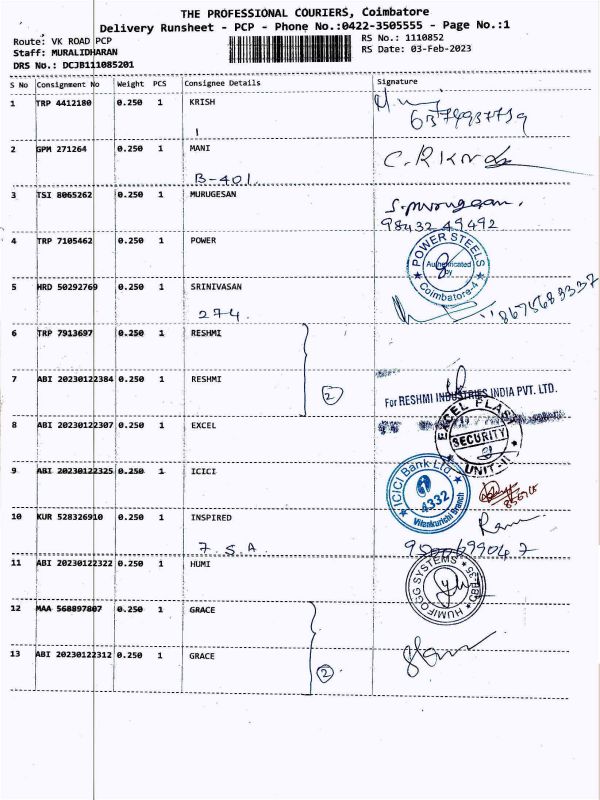 THE PROFESSIONAL COURIERS, Coimbatore
Delivery Runsheet - PCP - Phone No.:0422-3505555 - Page No.:1
Route: VK ROAD PCP
RS No.: 1110852
Staff: MURALIDHARAN
RS Date: 03-Feb-2023
DRS No.: DCJB111085201
S No Consignment No Weight PCS Consignee Details Signature
1 TRP 4412180 0.250 1 KRISH
1
2 GPM 271264 0.250 1 MANI
B-401.
3 TSI 8065262 0.250 1 MURUGESAN
S. Murugesan.
98432 49492
4 TRP 7105462 0.250 1 POWER
POWER STEELS
Authenticated
by
Coimbatore-4
5 HRD 50292769 0.250 1 SRINIVASAN
274.
6 TRP 7913697 0.250 1 RESHMI
7 ABI 20230122384 0.250 1 RESHMI
2
For RESHMI INDUSTRIES INDIA PVT. LTD.
8 ABI 20230122307 0.250 1 EXCEL
EXCEL PLAST
SECURITY
UNIT-II
9 ABI 20230122325 0.250 1 ICICI
ICICI Bank Ltd
4332
Vilankurichi Branch
10 KUR 528326910 0.250 1 INSPIRED
7. S.A.
11 ABI 20230122322 0.250 1 HUMI
HUMIFOGG SYSTEMS
12 MAA 568897807 0.250 1 GRACE
13 ABI 20230122312 0.250 1 GRACE
2